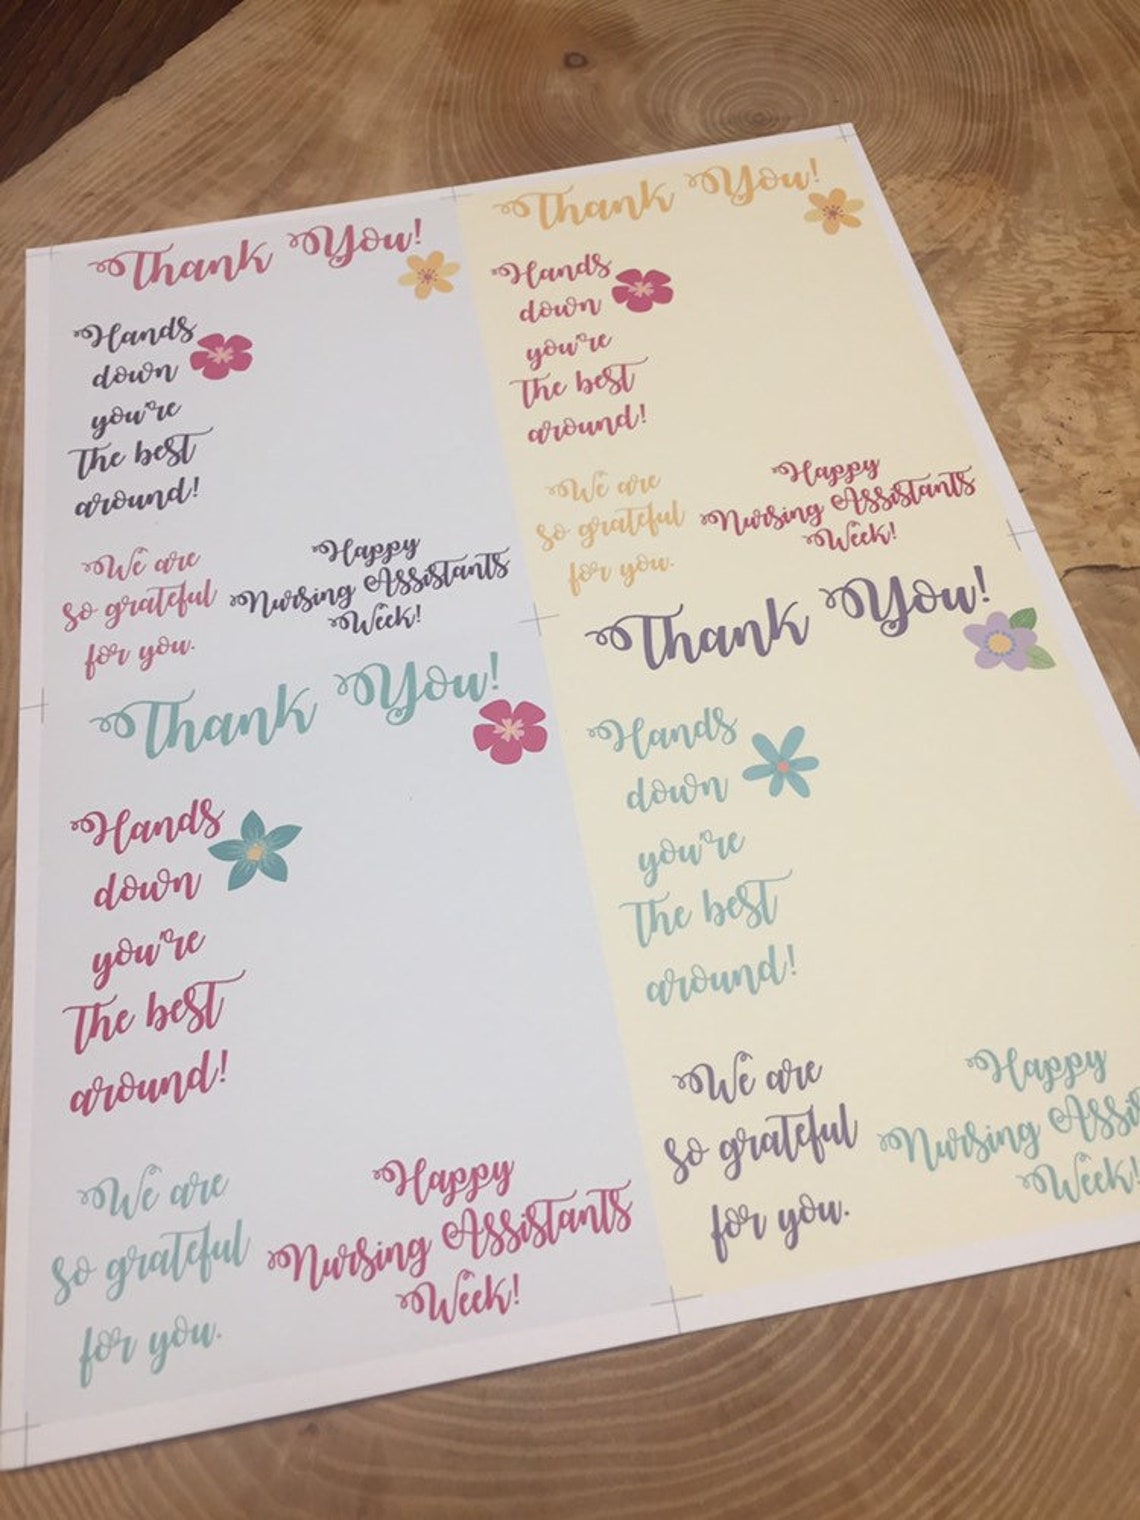 Thank You!
Hands
down
you're
the best
around!
We are
so grateful
for you.
Happy
Nursing Assistants
Week!
Thank You!
Hands
down
you're
the best
around!
We are
so grateful
for you.
Happy
Nursing Assistants
Week!
Thank You!
Hands
down
you're
the best
around!
We are
so grateful
for you.
Happy
Nursing Assistants
Week!
Thank You!
Hands
down
you're
the best
around!
We are
so grateful
for you.
Happy
Nursing Assis
Week!